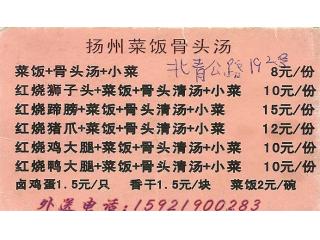 扬州菜饭骨头汤
菜饭+骨头汤+小菜 8元/份
北青公路192号
红烧狮子头+菜饭+骨头清汤+小菜 10元/份
红烧蹄膀+菜饭+骨头清汤+小菜 15元/份
红烧猪爪+菜饭+骨头清汤+小菜 12元/份
红烧鸡大腿+菜饭+骨头清汤+小菜 10元/份
红烧鸭大腿+菜饭+骨头清汤+小菜 10元/份
卤鸡蛋1.5元/只 香干1.5元/块 菜饭2元/碗
外送电话:15921900283